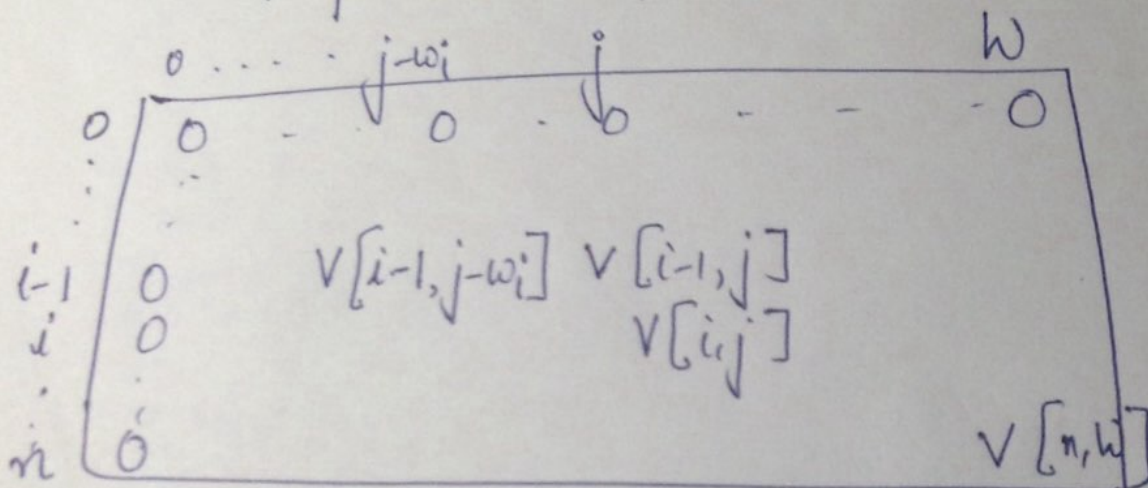 0 . . . . j-wi j W
0 0 - 0 . 0 - - - 0
:
i-1 0 V[i-1, j-wi] V[i-1, j]
i 0 V[i, j]
.
n 0 V[n, W]